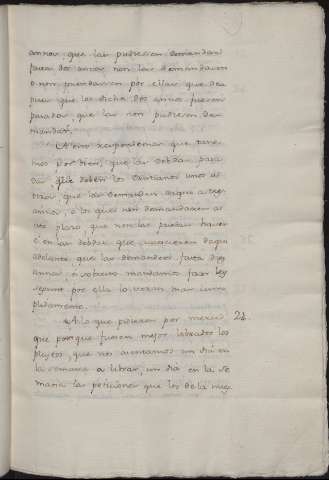 annos, que las pudiesen demandar
fasta dos annos, non las demandaron
o non prendaron por ellas que des
pues que los dichos dos annos fueron
pasados que las non pudiesen de
mandar.
A esto respondemos que tene
mos por bien, que las debdas pasa
das, que deben los christianos unos a
otros, que las demanden daqui a tres
annos, e los que non demandaren al
este plazo, que non las puedan haver
e en las debdas que acaescieren daqui
adelante que las demanden fasta diez
annos; e sobresto mandamos faser ley
segunt por ella lo veran mas cum
plidamente.
A lo que pidieron por merced 24
que porque fuesen mejor librados los
pleytos, que nos asentasemos un dia en
la semana a librar, un dia en la se
mana las peticiones que los de la nues